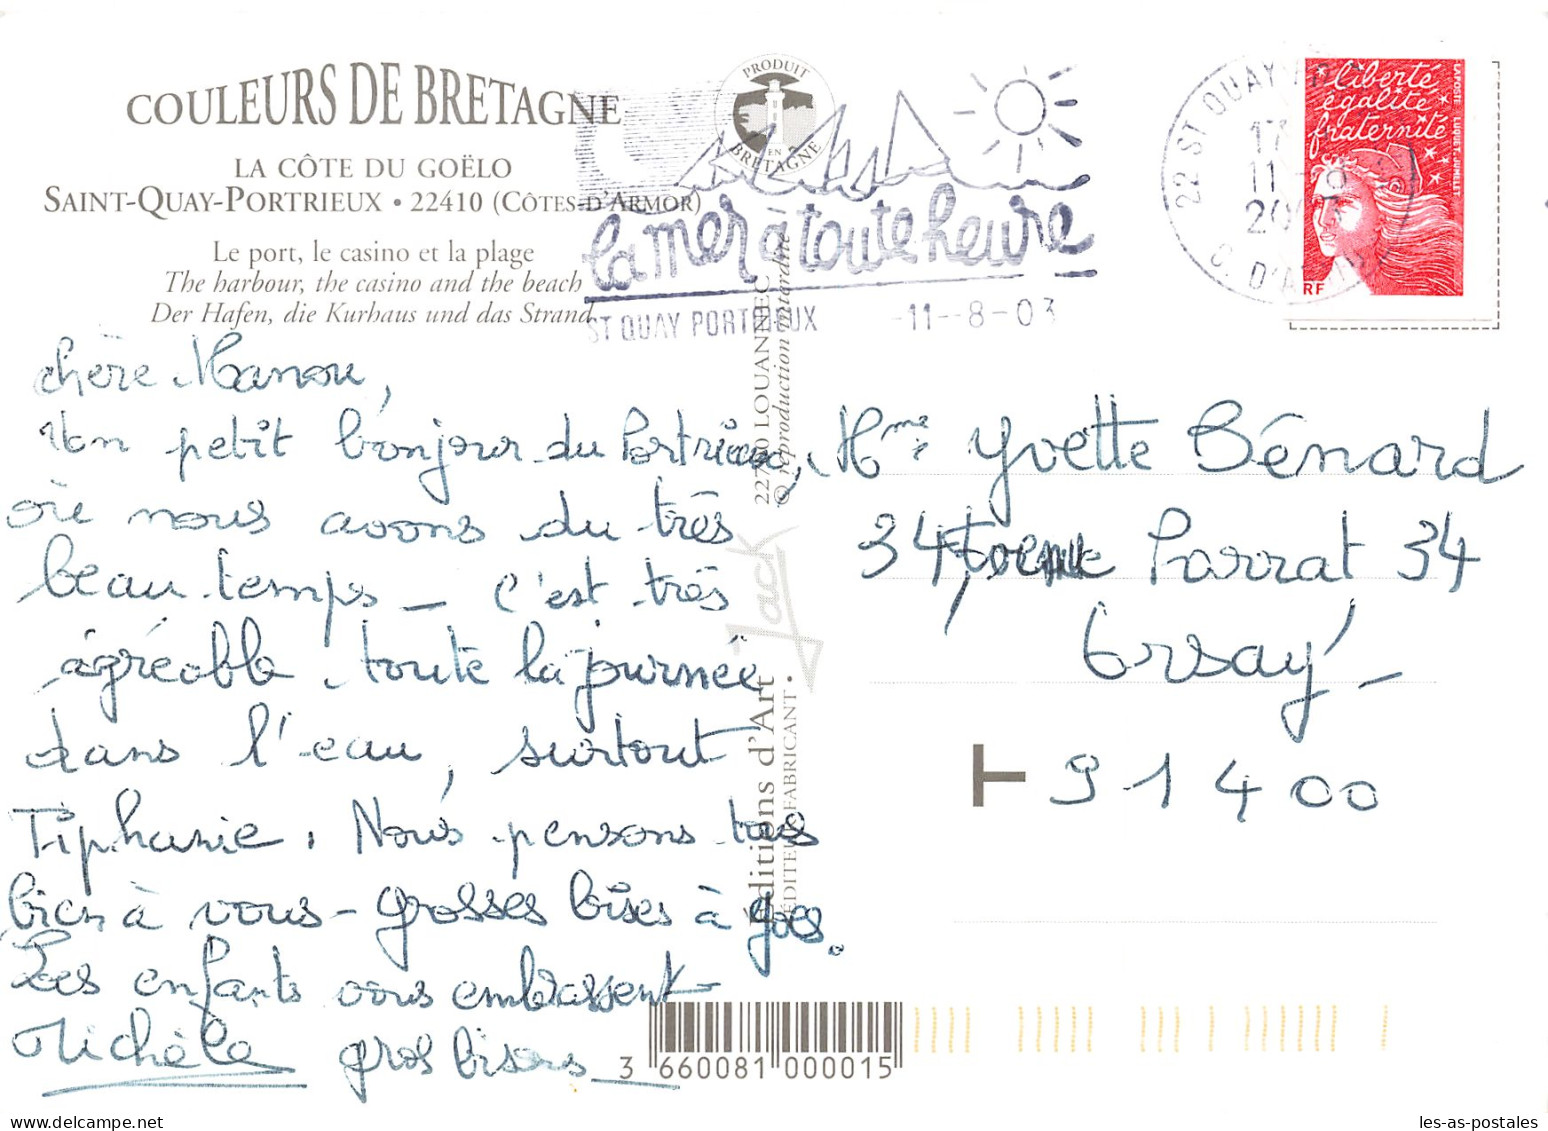 COULEURS DE BRETAGNE
LA CÔTE DU GOËLO
SAINT-QUAY-PORTRIEUX • 22410 (CÔTES-D'ARMOR)
Le port, le casino et la plage
The harbour, the casino and the beach
Der Hafen, die Kurhaus und das Strand
PRODUIT
EN
BRETAGNE
la mer à toute heure
ST QUAY PORTRIEUX -11--8-03
22 ST QUAY
17
11-8
2003
C. D'ARMOR
liberté
égalité
fraternité
LA POSTE LUQUET-JUMELET
RF
chère Manou,
Un petit bonjour du Portrieux,
où nous avons du très
beau temps - c'est très
agréable, toute la journée
dans l'eau, surtout
Tiphanie. Nous pensons tous
bien à vous - grosses bises à vous.
Les enfants vous embrassent
Michèle gros bisous
22700 LOUANNEC
© reproduction interdite
Jack
Editions d'Art
ÉDITEUR FABRICANT •
Mme Yvette Bénard
34 Parrat 34
Orsay -
91400
3 660081 000015
les-as-postales